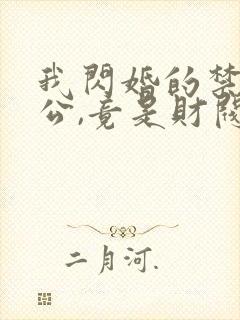 我閃婚的禁
公,竟是財閥
二月河.